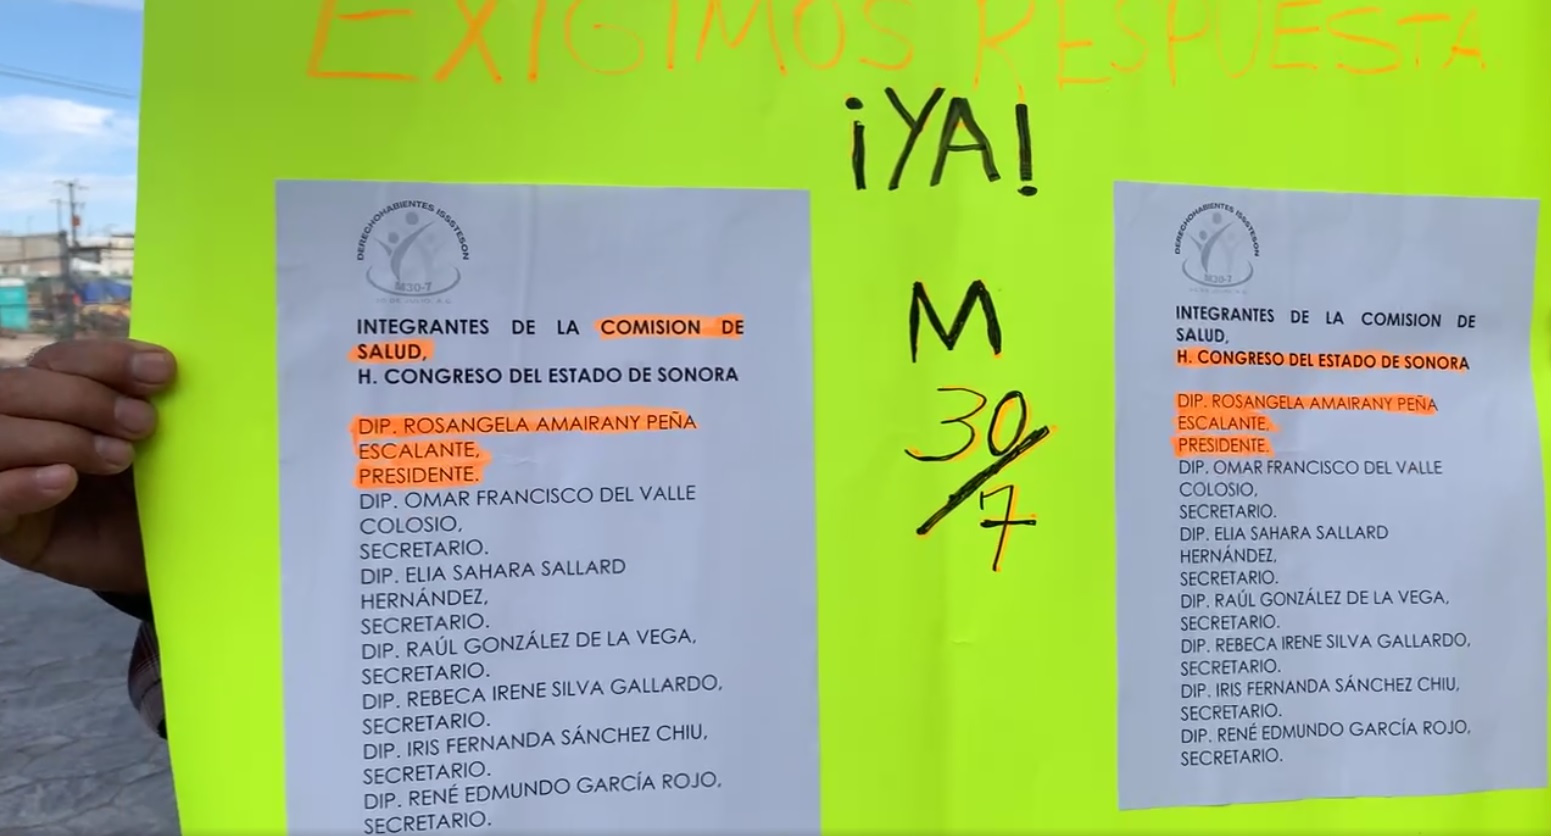 EXIGIMOS RESPUESTA
¡YA!
M
30/7
DERECHOHABIENTES ISSSTESON
M30-7
INTEGRANTES DE LA COMISION DE
SALUD,
H. CONGRESO DEL ESTADO DE SONORA
DIP. ROSANGELA AMAIRANY PEÑA
ESCALANTE,
PRESIDENTE.
DIP. OMAR FRANCISCO DEL VALLE
COLOSIO,
SECRETARIO.
DIP. ELIA SAHARA SALLARD
HERNÁNDEZ,
SECRETARIO.
DIP. RAÚL GONZÁLEZ DE LA VEGA,
SECRETARIO.
DIP. REBECA IRENE SILVA GALLARDO,
SECRETARIO.
DIP. IRIS FERNANDA SÁNCHEZ CHIU,
SECRETARIO.
DIP. RENÉ EDMUNDO GARCÍA ROJO,
SECRETARIO.
DERECHOHABIENTES ISSSTESON
M30-7
INTEGRANTES DE LA COMISION DE
SALUD,
H. CONGRESO DEL ESTADO DE SONORA
DIP. ROSANGELA AMAIRANY PEÑA
ESCALANTE,
PRESIDENTE.
DIP. OMAR FRANCISCO DEL VALLE
COLOSIO,
SECRETARIO.
DIP. ELIA SAHARA SALLARD
HERNÁNDEZ,
SECRETARIO.
DIP. RAÚL GONZÁLEZ DE LA VEGA,
SECRETARIO.
DIP. REBECA IRENE SILVA GALLARDO,
SECRETARIO.
DIP. IRIS FERNANDA SÁNCHEZ CHIU,
SECRETARIO.
DIP. RENÉ EDMUNDO GARCÍA ROJO,
SECRETARIO.